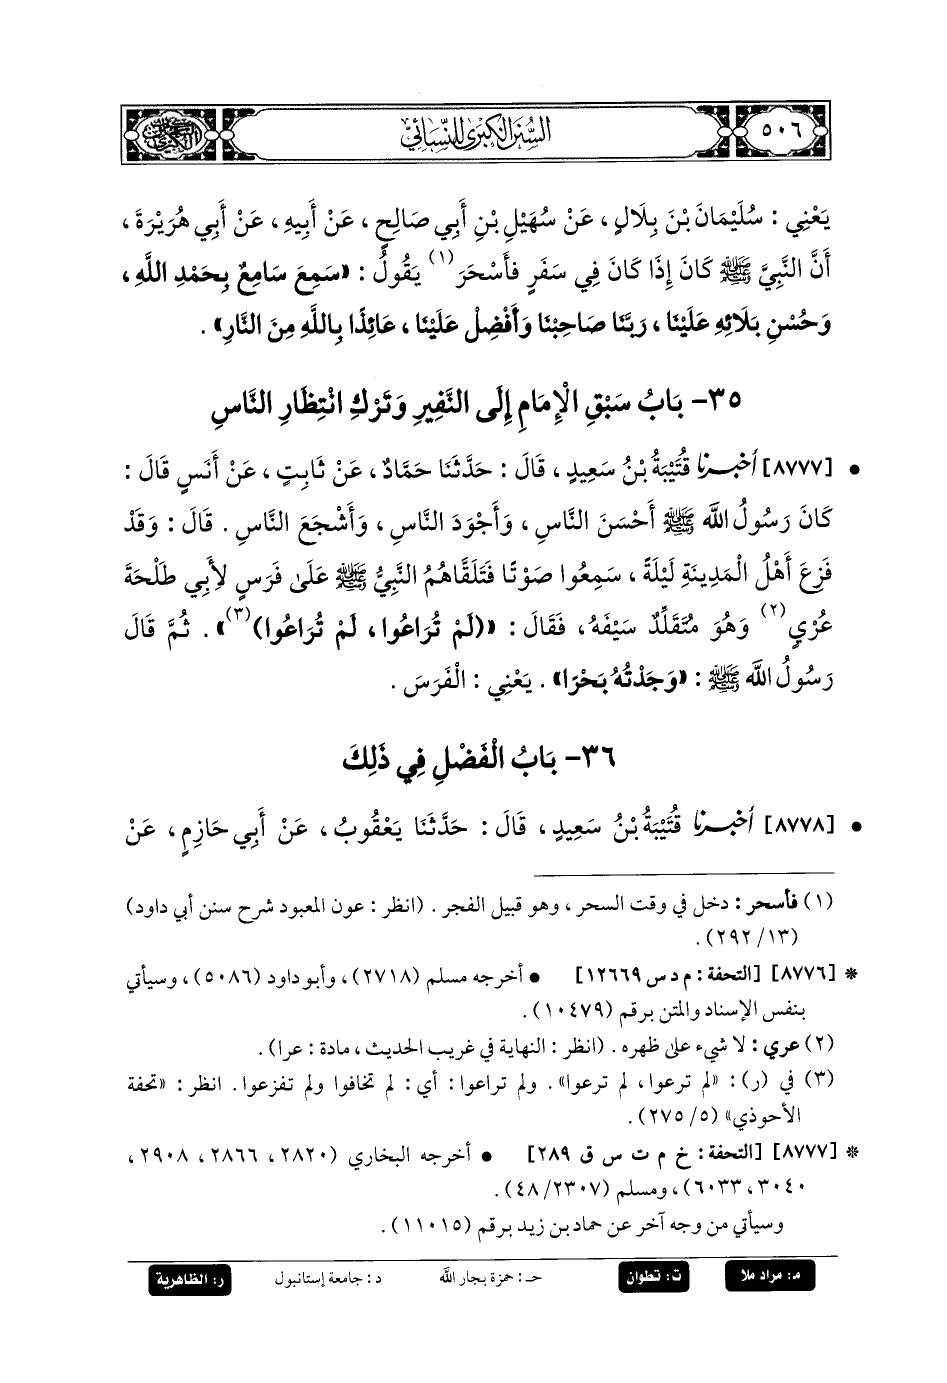 ٥٠٦
السنن الكبرى للنسائي
يَعْنِي : سُلَيْمَانَ بْنَ بِلَالٍ ، عَنْ سُهَيْلِ بْنِ أَبِي صَالِحٍ ، عَنْ أَبِيهِ ، عَنْ أَبِي هُرَيْرَةَ ،
أَنَّ النَّبِيَّ ﷺ كَانَ إِذَا كَانَ فِي سَفَرٍ فَأَسْحَرَ (١) يَقُولُ : «سَمِعَ سَامِعٌ بِحَمْدِ اللَّهِ ،
وَحُسْنِ بَلَائِهِ عَلَيْنَا ، رَبَّنَا صَاحِبْنَا وَأَفْضِلْ عَلَيْنَا ، عَائِذًا بِاللَّهِ مِنَ النَّارِ» .
٣٥- بَابُ سَبْقِ الْإِمَامِ إِلَى النَّفِيرِ وَتَرْكِ انْتِظَارِ النَّاسِ
• [٨٧٧٧] أخبرنا قُتَيْبَةُ بْنُ سَعِيدٍ ، قَالَ : حَدَّثَنَا حَمَّادٌ ، عَنْ ثَابِتٍ ، عَنْ أَنَسٍ قَالَ :
كَانَ رَسُولُ اللَّهِ ﷺ أَحْسَنَ النَّاسِ ، وَأَجْوَدَ النَّاسِ ، وَأَشْجَعَ النَّاسِ . قَالَ : وَقَدْ
فَزِعَ أَهْلُ الْمَدِينَةِ لَيْلَةً ، سَمِعُوا صَوْتًا فَتَلَقَّاهُمُ النَّبِيُّ ﷺ عَلَى فَرَسٍ لِأَبِي طَلْحَةَ
عُرْيٍ (٢) وَهُوَ مُتَقَلِّدٌ سَيْفَهُ ، فَقَالَ : «(لَمْ تُرَاعُوا ، لَمْ تُرَاعُوا) (٣)» . ثُمَّ قَالَ
رَسُولُ اللَّهِ ﷺ : «وَجَدْتُهُ بَحْرًا» . يَعْنِي : الْفَرَسَ .
٣٦- بَابُ الْفَضْلِ فِي ذَلِكَ
• [٨٧٧٨] أخبرنا قُتَيْبَةُ بْنُ سَعِيدٍ ، قَالَ : حَدَّثَنَا يَعْقُوبُ ، عَنْ أَبِي حَازِمٍ ، عَنْ
(١) فأسحر : دخل في وقت السحر ، وهو قبيل الفجر . (انظر : عون المعبود شرح سنن أبي داود)
(١٣/ ٢٩٢) .
* [٨٧٧٦] [التحفة : م د س ١٢٦٦٩] • أخرجه مسلم (٢٧١٨) ، وأبو داود (٥٠٨٦) ، وسيأتي
بنفس الإسناد والمتن برقم (١٠٤٧٩) .
(٢) عري : لا شيء على ظهره . (انظر : النهاية في غريب الحديث ، مادة : عرا) .
(٣) في (ر) : «لم ترعوا ، لم ترعوا» . ولم تراعوا : أي : لم تخافوا ولم تفزعوا . انظر : «تحفة
الأحوذي» (٥/ ٢٧٥) .
* [٨٧٧٧] [التحفة : خ م ت س ق ٢٨٩] • أخرجه البخاري (٢٨٢٠ ، ٢٨٦٦ ، ٢٩٠٨ ،
٣٠٤٠ ، ٦٠٣٣) ، ومسلم (٤٨/٢٣٠٧) .
وسيأتي من وجه آخر عن حماد بن زيد برقم (١١٠١٥) .
م : مراد ملا
ت : تطوان
حـ : حمزة بجار الله
د : جامعة إستانبول
ر : الظاهرية